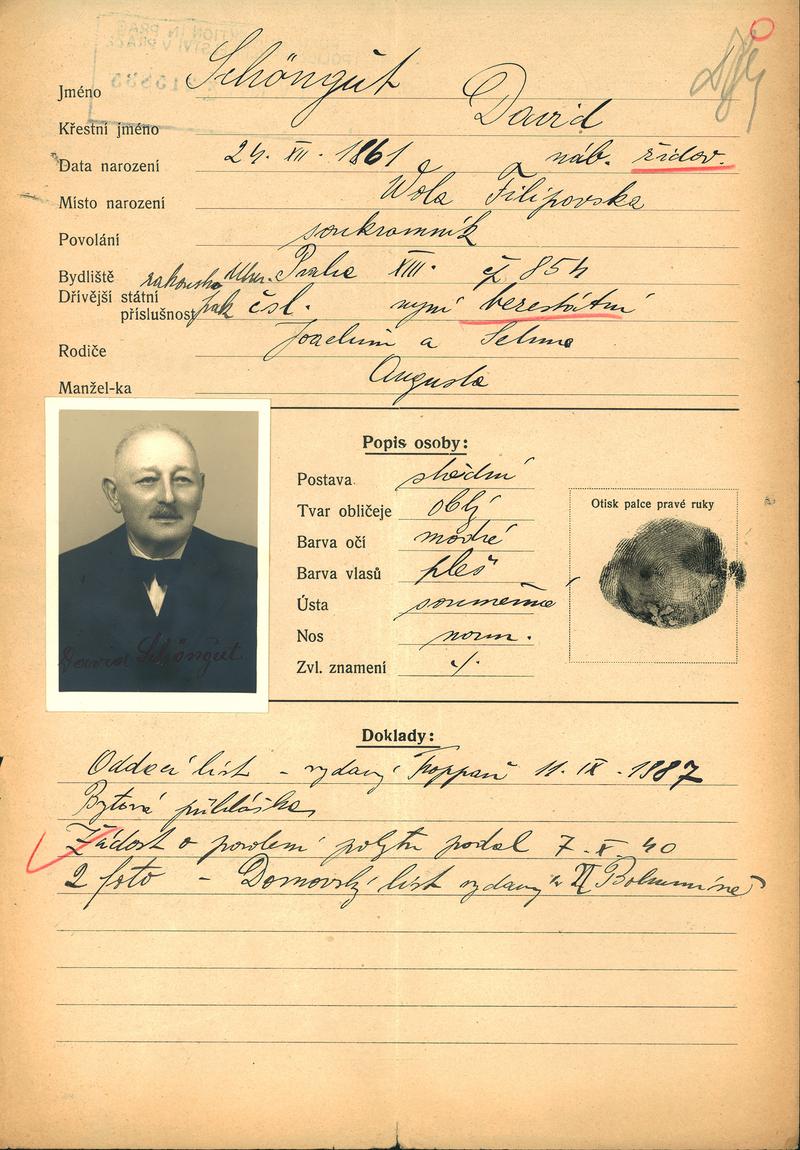 Jméno Schöngut
Křestní jméno David
Data narození 24. XII. 1861 náb. židov.
Místo narození Wola Filipovska
Povolání soukromník
Bydliště Praha XIII. čp. 854
Dřívější státní příslušnost rakousko pak čsl. nyní bezestátní
Rodiče Joachim a Selma
Manžel-ka Augusta
Popis osoby:
Postava střední
Tvar obličeje oblý
Barva očí modré
Barva vlasů pleš
Ústa souměrná
Nos norm.
Zvl. znamení ./.
Otisk palce pravé ruky
David Schöngut
Doklady:
Oddací list - vydaný Troppau 11. IX. 1887
Bytová přihláška
Žádost o povolení pobytu podal 7. X. 40
2 foto - Domovský list vydaný v Bohumíně